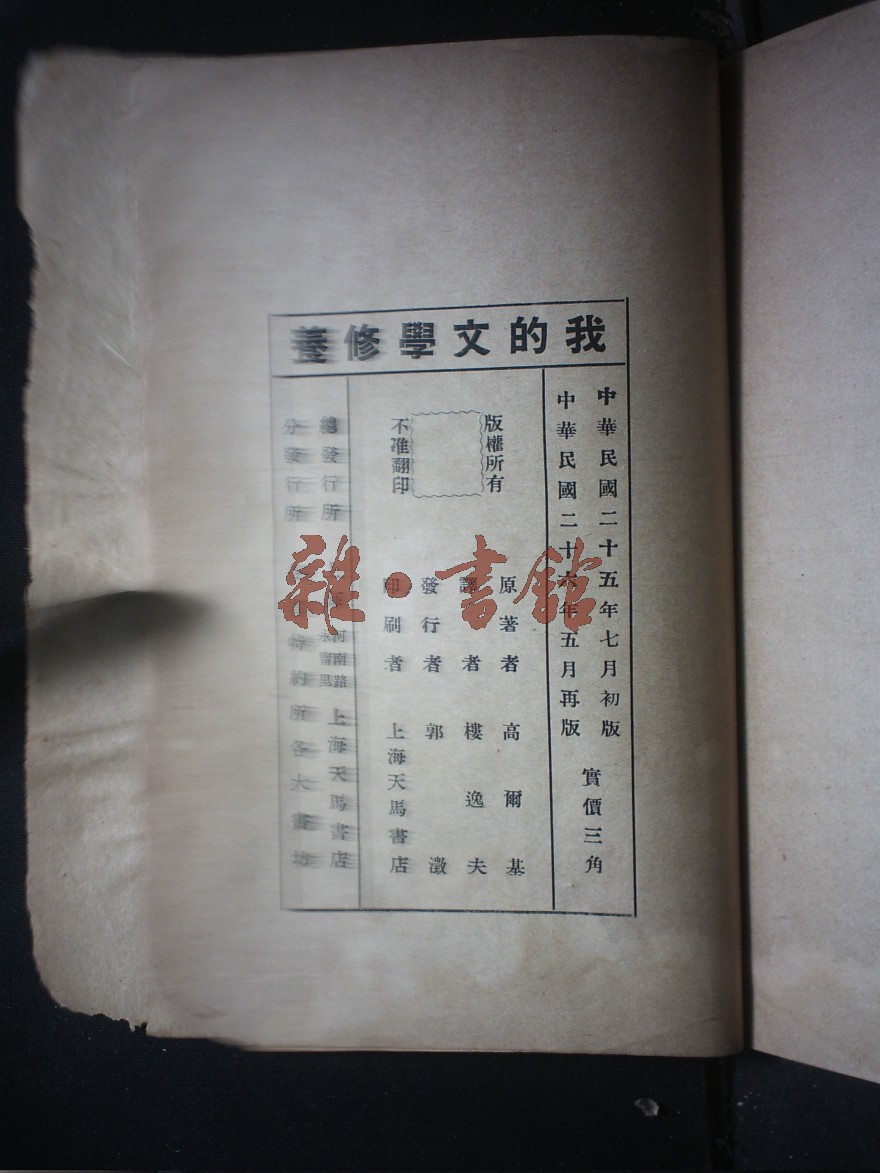 我的文學修養
中華民國二十五年七月初版
中華民國二十六年五月再版
實價三角
版權所有
不准翻印
原著者 高爾基
譯者 樓逸夫
發行者 郭澂
印刷者 上海天馬書店
總發行所
河南路
里
上海天馬書店
分發行所
特約所各大書坊
雜·書館